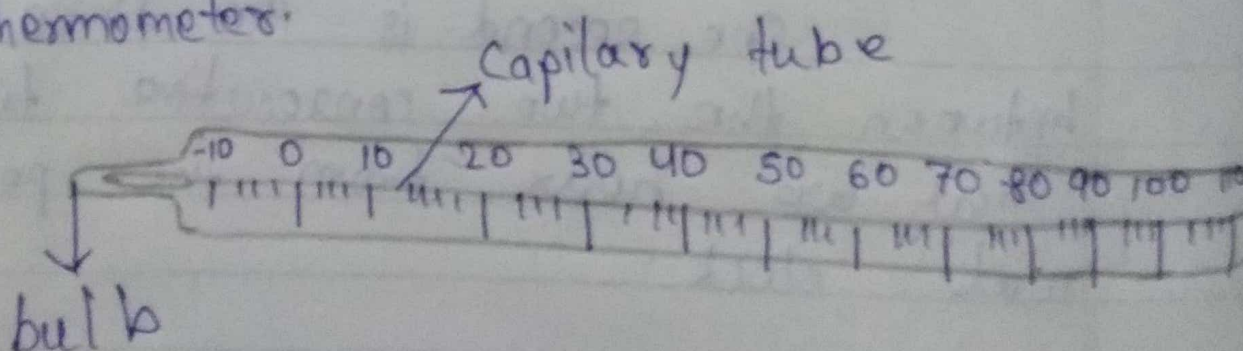 hermometer.
Capilary tube
-10 0 10 20 30 40 50 60 70 80 90 100
bulb